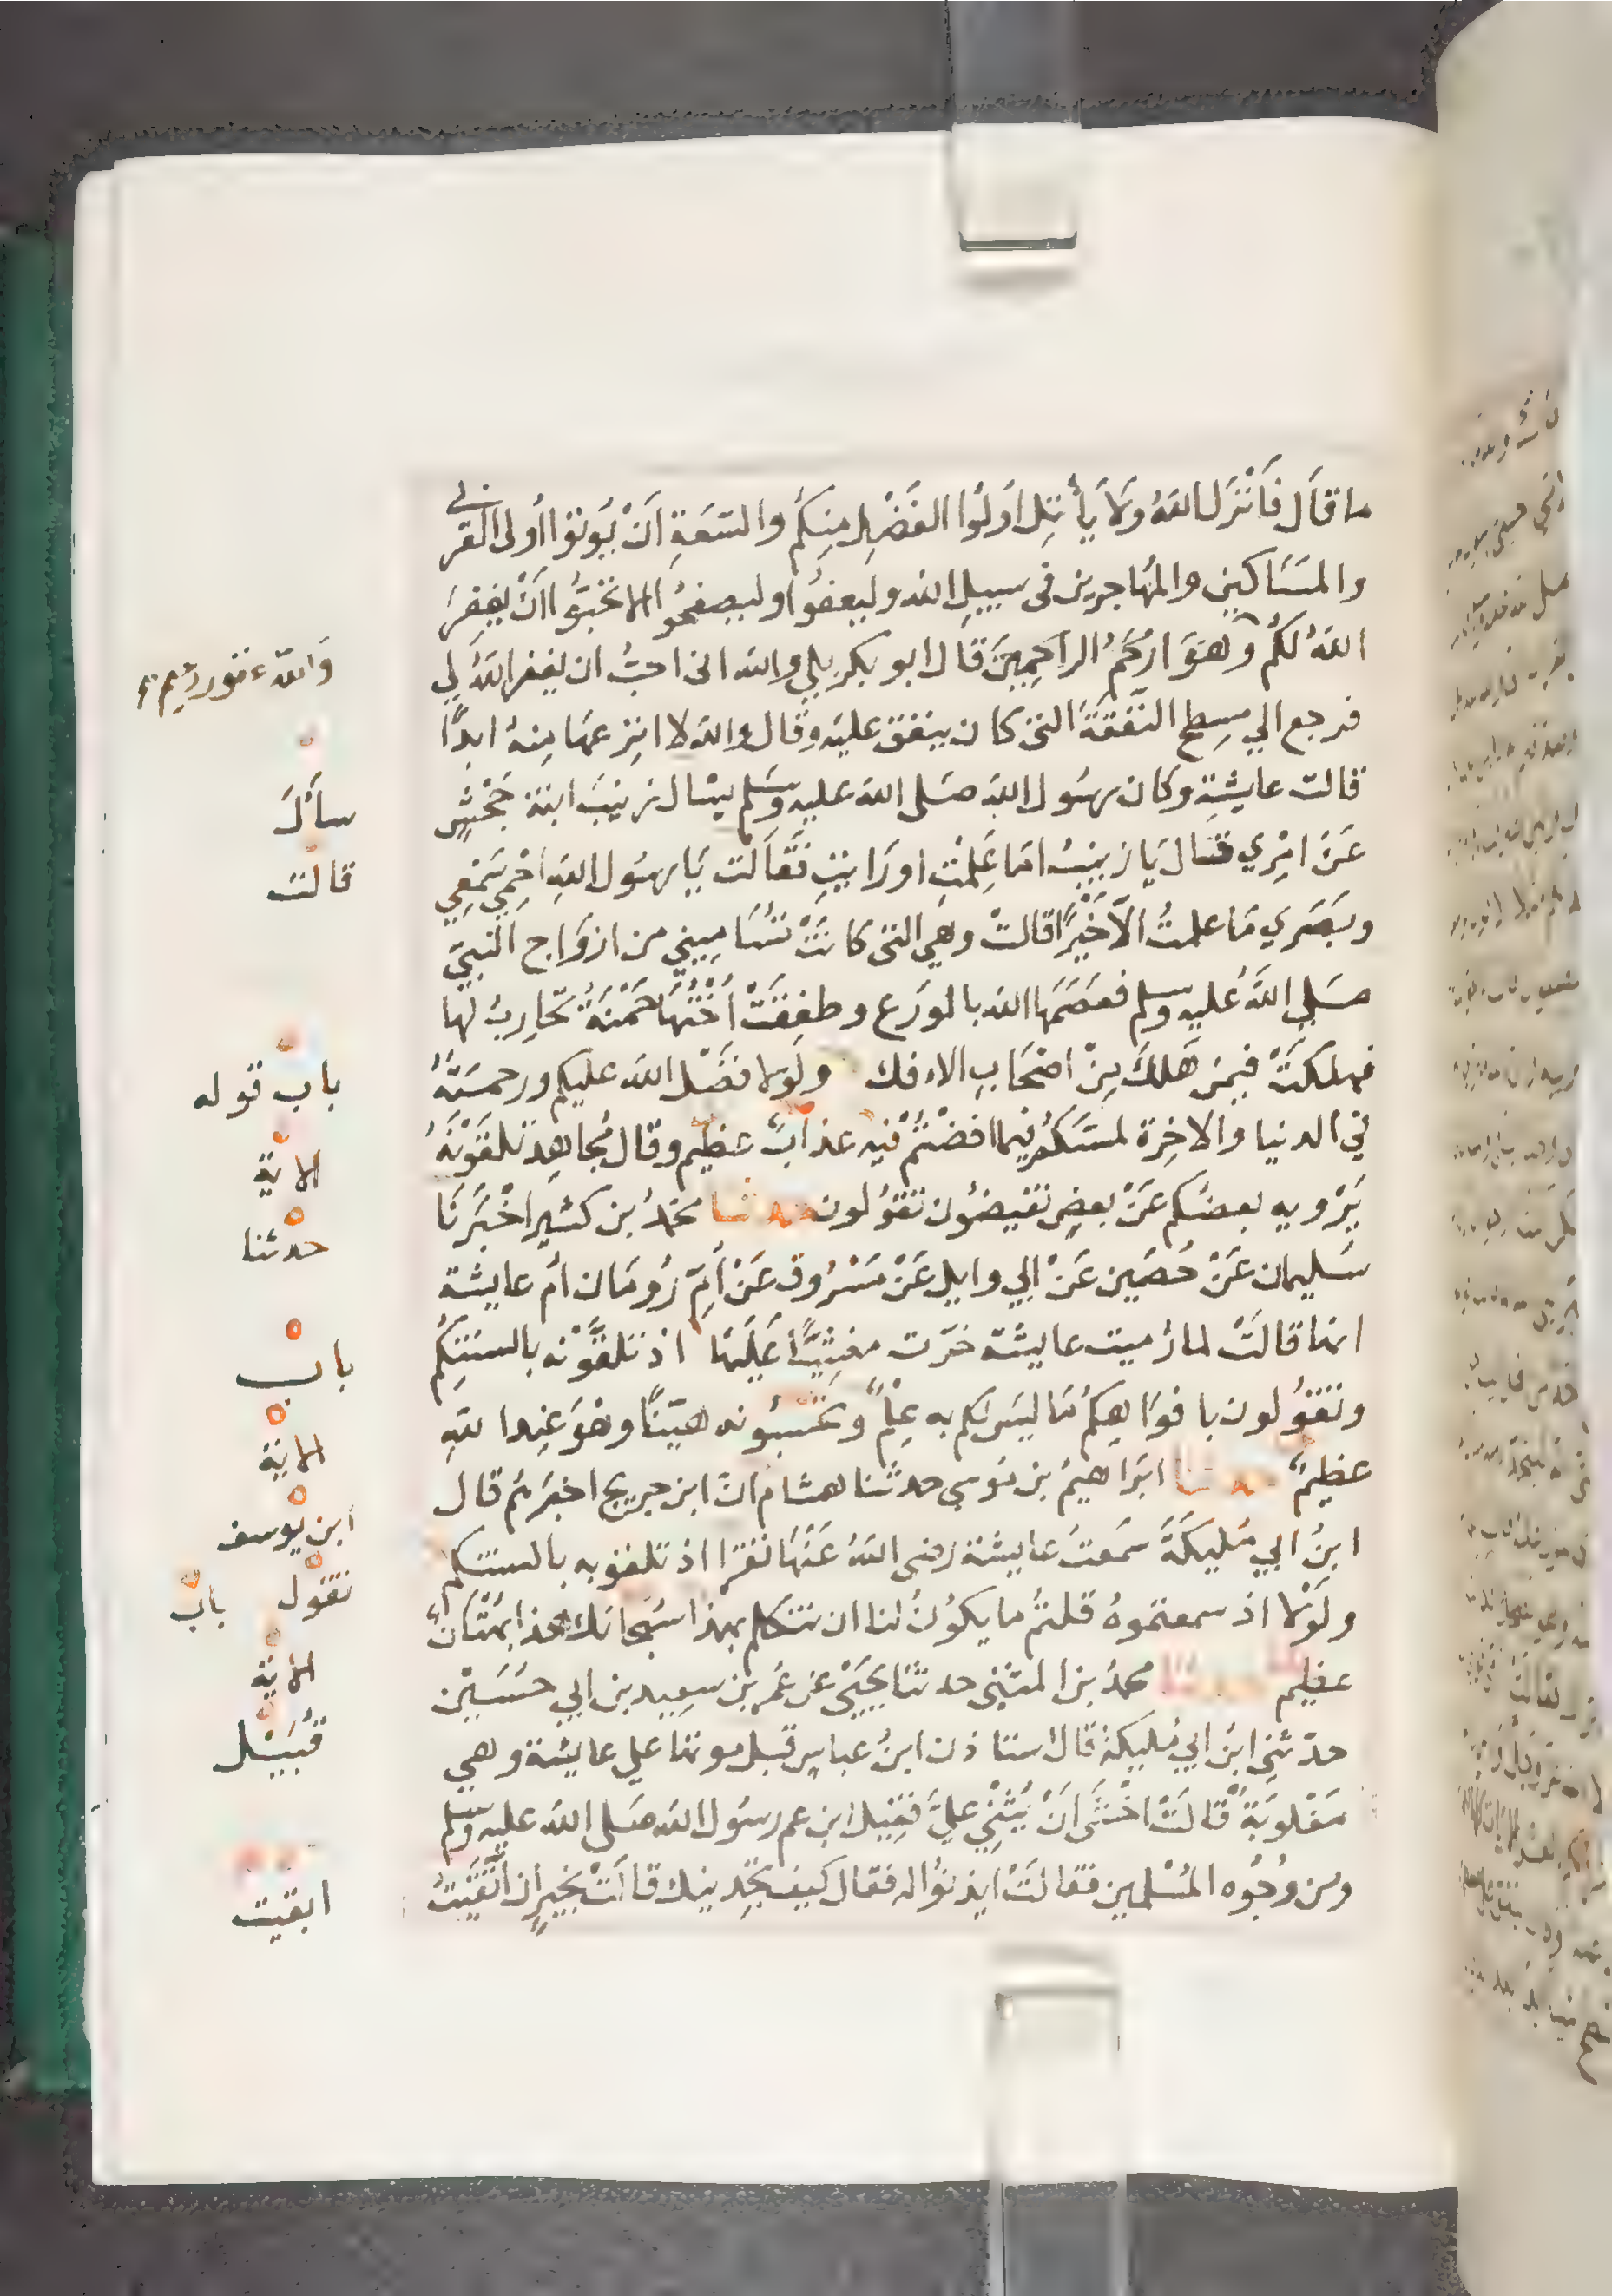 ما قال فَأَنْزَلَ اللهُ ولَا يأْتَلِ اُولُوا الفَضْلِ مِنكُم والسَّعَةِ اَنْ يُوتوا اُولى القربى
والمَسَاكين والمهاجرين فى سبيل الله وليعفُوا وليصفحُوا الا تحبُّوا اَنْ يَغفِرَ
اللهُ لكُم وهُوَ ارْحَمُ الراحِمِينَ قال ابو بكر بلي والله انى احبُّ ان يغفر اللهُ لي
والله غفور رحيم
فرجع الي مِسطح النَّفَقَةَ التى كان ينفق عليه وقال والله لا انزعها مِنهُ ابدًا
قالت عايشة وكان رسُول الله صَلى الله عليه وسَلم يسْال زينبَ ابنة جَحْشٍ
سأَلَ
عَنْ امْرِي فقال يَا زينبُ امَا عَلِمْتِ او رَايتِ فَقَالت يَا رسُول اللهِ احْمِي سَمْعِي
قالت
وبَصَرِي مَا علمتُ الَّا خَيْرًا قالتْ وهي التى كانَتْ تُسَامِينِي من ازوَاج النبيّ
صَلي اللهُ عليه وسلم فعَصَمَها الله بالورَع وطفِقَتْ اُخْتُهَا حَمْنَةُ تحَارِبُ لها
فهلكتْ فيمَن هَلكَ مِنْ اصْحَابِ الافك ولولا فضْل الله عليكم ورحمتهُ
باب قوله
في الدنيا والاخِرة لمسَّكُم فيما افضْتُمْ فيه عذابٌ عظيم وقال مُجاهِد تلقَّوْنَهُ
الاية
يَرْويه بعضُكم عَنْ بعضٍ تفيضُون تقوُلون حدثنا محمدُ بن كثير اخْبَرَنَا
حدثنا
سُليمان عَنْ حُصَين عَنْ ابي وايل عَنْ مَسْرُوق عَنْ اُمّ رُومَان اُم عايشة
انها قالَتْ لما رُميت عايشة خرّت مغشيًّا عَلَيْها اذ تلقَّوْنه بالسنتِكُم
باب
وتقوُلون بافوَاهِكُم مَا ليسَ لكم به عِلْمٌ وتحْسَبُونه هيّنًا وهْوَ عِند اللهِ
عظيمٌ حدثنا ابرَاهيمُ بن مُوسي حدثنا هشام انّ ابن جريج اخبرهُم قال
الاية
ابنُ ابي مُليكَةَ سَمعتُ عايشة رضى اللهُ عَنْهَا تقرا اذ تلقونه بالسنتكم
ابن يوسف
ولَوْلا اذ سمعتموهُ قلتُم ما يكوُنُ لنا ان نتكلم بهذا سُبحانك هذا بُهْتَانٌ
تقول باب
عظيم حدثنا محمدُ بن المثنى حدثنا يَحيَى عن عُمَر بن سعِيد بن ابي حُسَيْن
الاية
حدّثنِي ابنُ ابي مُليكة قال استاذن ابنُ عباس قبل موتها علي عايشة وهي
قُبَيْل
مَغْلوبَةٌ قالَتْ اخْشَى اَنْ يُثْنِيَ عليَّ فَقِيل ابن عم رسُول الله صَلى الله عليه وسلم
ومن وُجُوه المُسْلمين فقالتْ ايذنوُا له فقال كيف تجدينك قالَتْ بخيرٍ ان اتَّقَيْتُ
ابقيت